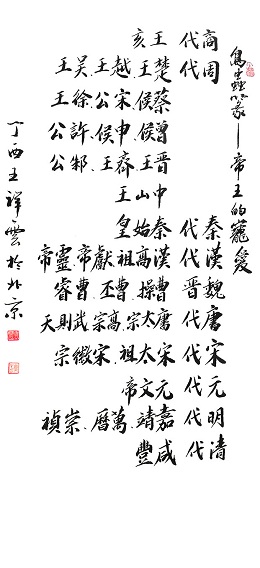 鳥蟲篆—帝王的寵愛
商代 王亥
周代 楚王.越王.吳王
蔡侯.宋公.徐王
曾侯.申侯.許公
晉王.齊王.邾公
中山王
秦代 秦始皇
漢代 漢高祖.獻帝.靈帝
魏晉 曹操.曹丕.曹睿
唐代 唐太宗.高宗.武則天
宋代 宋太祖.宋徽宗
元代 元文帝
明代 嘉靖.萬曆.崇禎
清代 咸豐
丁酉王祥雲於北京